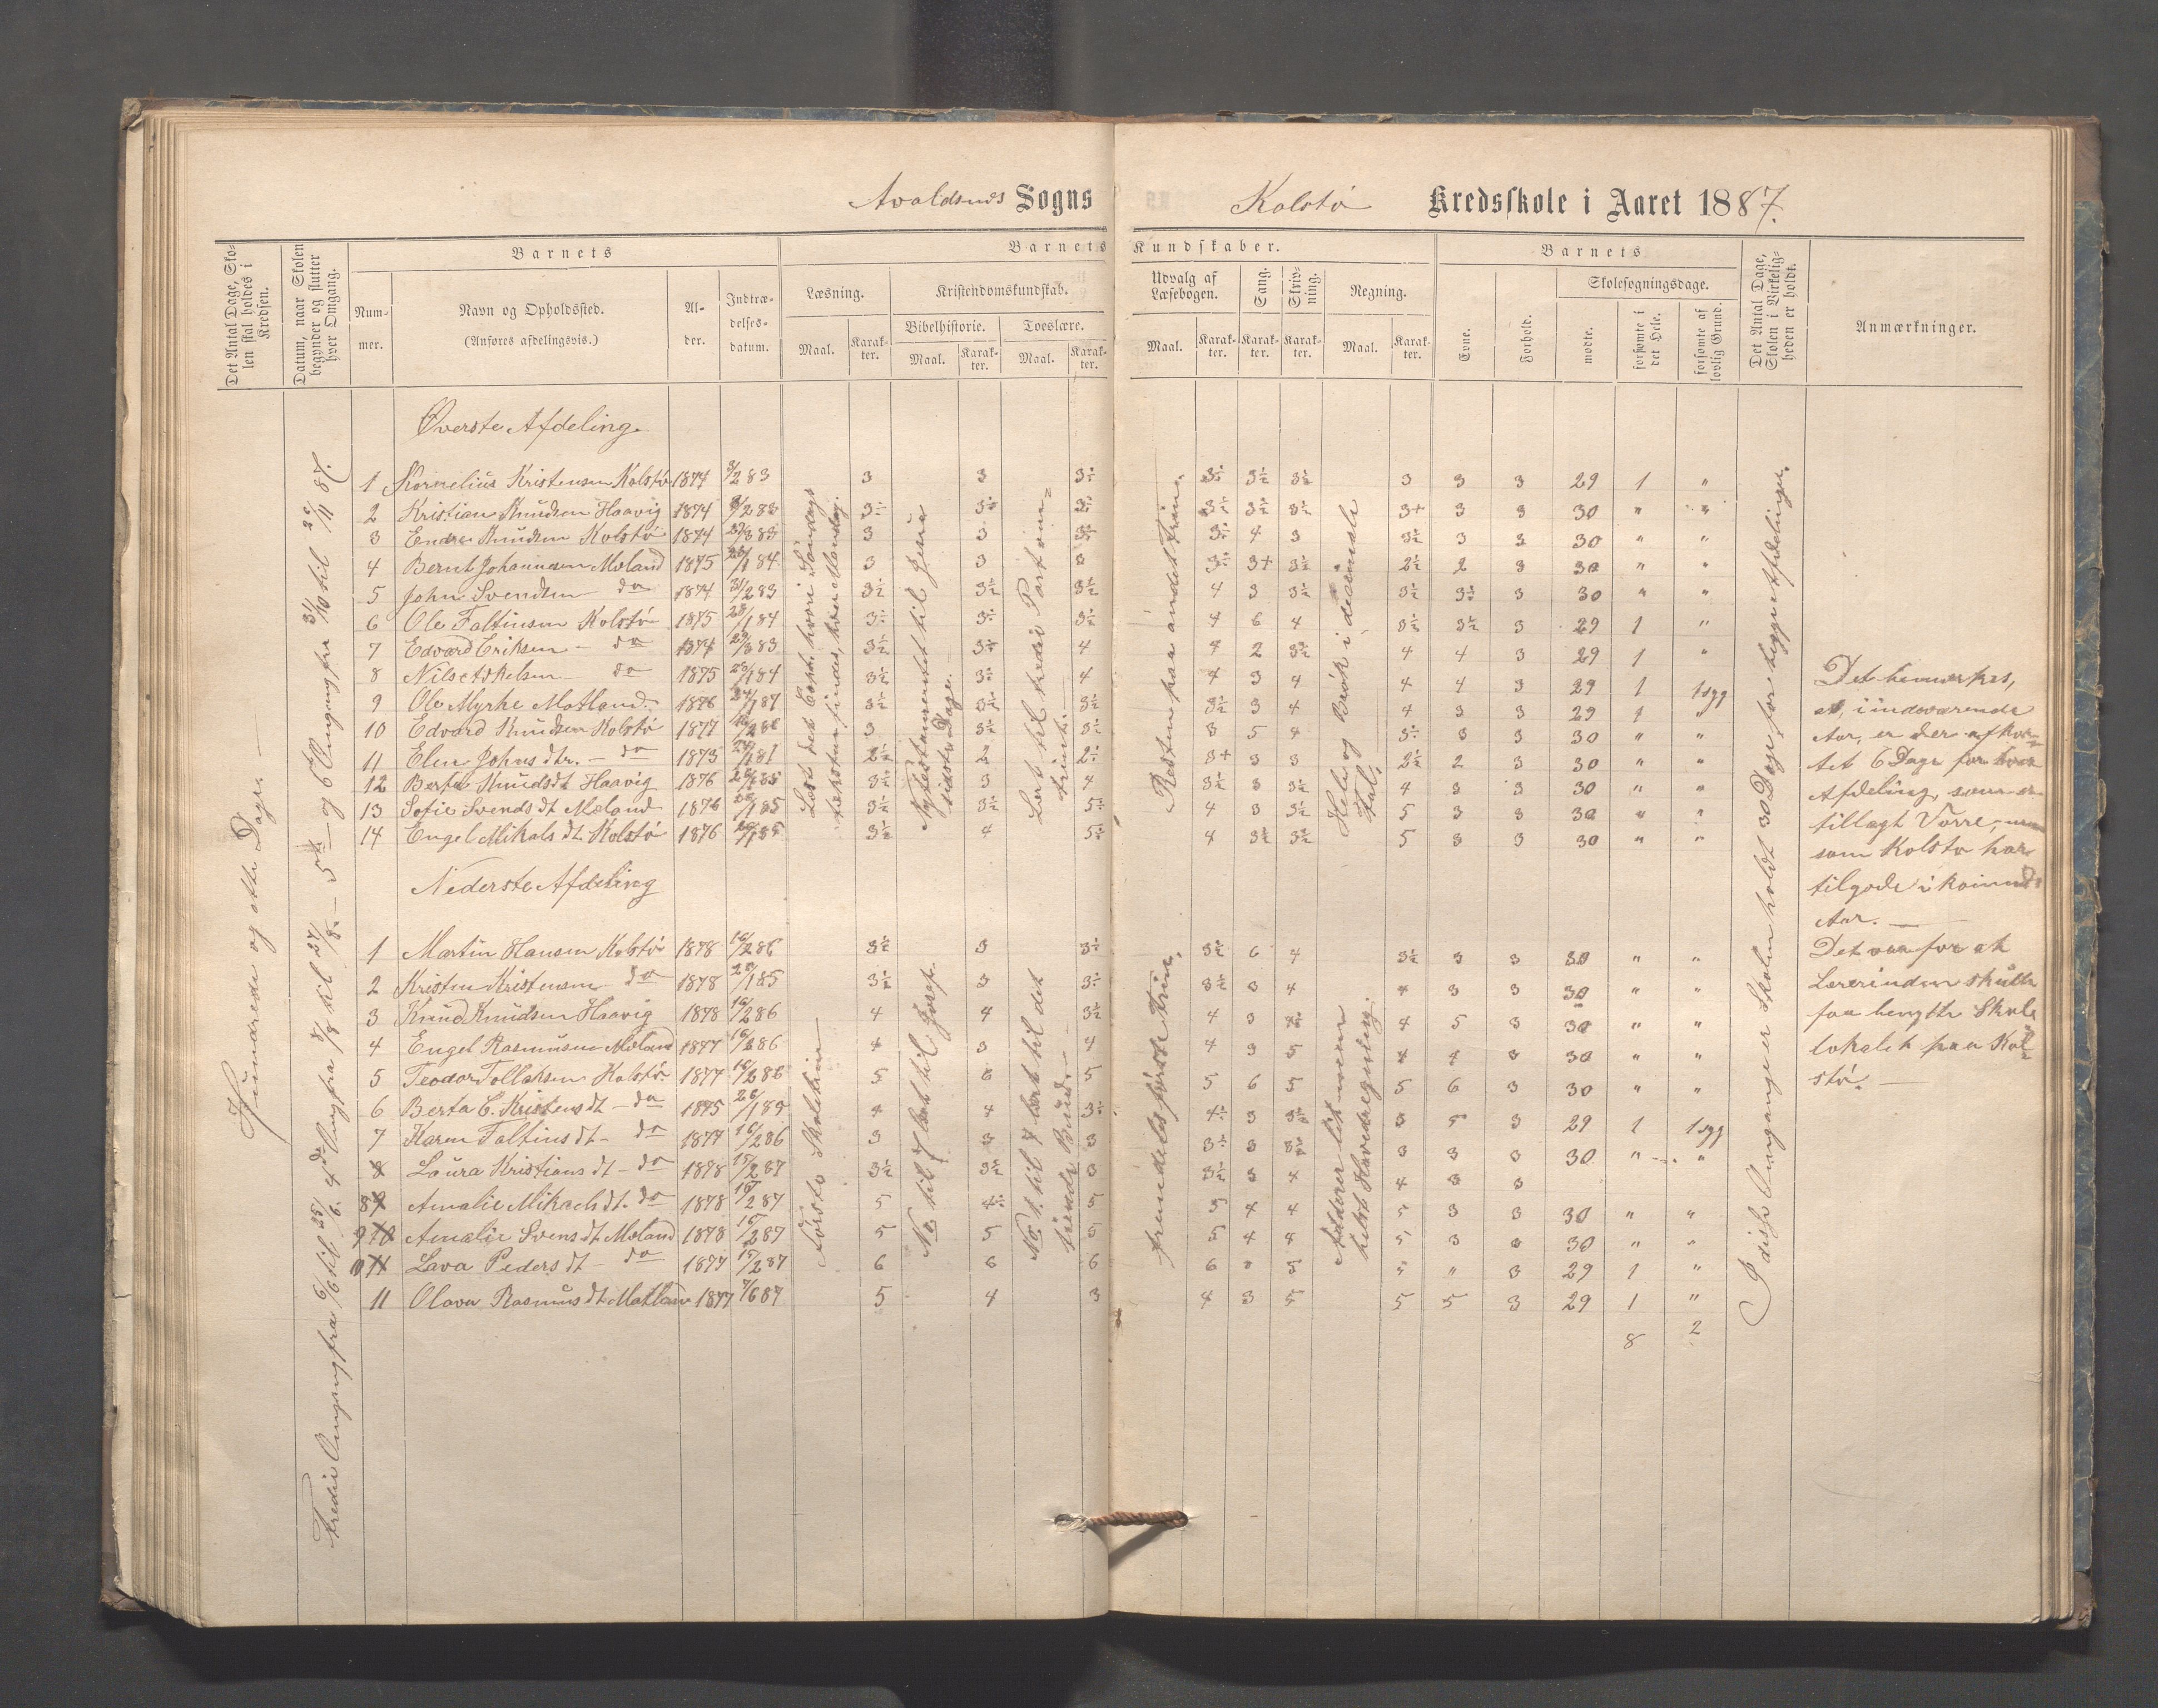 Avaldsnes Sogns
Kolstø Kredsskole i Aaret 1887.
Det Antal Dage, Skolen skal holdes i Kredsen.
Datum, naar Skolen begynder og slutter hver Omgang.
Barnets
Barnets Kundskaber.
Barnets
Det Antal Dage, Skolen i Virkeligheden er holdt.
Anmærkninger.
Nummer.
Navn og Opholdssted.
(Anføres afdelingsvis.)
Alder.
Indtrædelsesdatum.
Læsning.
Kristendomskundskab.
Udvalg af Læsebogen.
Sang.
Skrivning.
Regning.
Evne.
Forhold.
Skolesøgningsdage.
Bibelhistorie.
Troeslære.
Maal.
Karakter.
Maal.
Karakter.
Maal.
Karakter.
Maal.
Karakter.
Karakter.
Karakter.
Maal.
Karakter.
mødte.
forsømte i det Hele.
forsømte af lovlig Grund.
Øverste Afdeling
1 Kornelius Kristensen Kolstø 1874 3/2 83 3 3 3÷ 3÷ 3½ 3½ 3 3 3 29 1 "
2 Kristian Knudsen Haavig 1874 3÷ 3÷ 3÷ 3½ 3½ 3½ 3+ 3 3 30 " "
3 Endre Knudsen Kolstø 1874 3 3 3÷ 3÷ 4 3 3½ 3 3 30 " "
4 Bernt Johannesen Mæland 1875 3 3 3 3÷ 3+ 3½ 2½ 2 3 30 " "
5 John Svendsen do 1874 31/2 83 3½ 3½ 3½ 4 3 3½ 3½ 3½ 3 30 " "
6 Ole Faltinsen Kolstø 1875 3÷ 3÷ 3½ 4 6 4 3½ 3½ 3 29 1 "
7 Edvard Eriksen - do 1874 3½ 3÷ 4 4 2 3½ 4 4 3 29 1 "
8 Nils Askelsen do 1875 3½ 3÷ 4 4 3 4 4 4 3 29 1 1 syg
9 Ole Myrhe Matland 1876 3½ 3½ 3½ 3½ 3 4 4 3 3 29 1 "
10 Edvard Knudsen Kolstø 1877 3 3½ 3½ 3 5 4 3÷ 3 3 30 " "
11 Elen Johns dtr. - do 1873 2½ 2 2÷ 3+ 3 3 2½ 2 3 30 " "
12 Berta Knudsdt Haavig 1876 3½ 3 4 3½ 3 3½ 4 3 3 30 " "
13 Sofie Svends dt Mæland 1876 3½ 3½ 5÷ 4 3 3½ 5 3 3 30 " "
14 Engel Mikals dt. Kolstø 1876 3½ 4 5÷ 4 3½ 3½ 5 3 3 30 " "
Nederste Afdeling
1 Martin Hansen Kolstø 1878 16/2 86 3½ 3 3÷ 3½ 6 4 3½ 3 3 30 " "
2 Kristen Kristensen do 1878 3½ 3 3÷ 3½ 3 4 4 3 3 30 " "
3 Knud Knudsen Haavig 1878 16/2 86 4 4 3½ 4 3 4÷ 4 5 3 30 " "
4 Engel Rasmusen Mæland 1877 16/2 86 4 3 4 4 3 5 4 4 3 30 " "
5 Teodor Tollaksen Kolstø 1877 16/2 86 5 5 5 6 5 5 6 3 30 " "
6 Berta C. Kristens dt - do 1875 4 4 3÷ 4÷ 3 3½ 3 5 3 29 1 1 syg
7 Karen Faltins dt - do 1877 16/2 86 3 3 3 3÷ 3 3½ 3 3 3 30 " "
8 Laura Kristians dt - do 1878 15/2 87 3½ 3½ 3 3½ 3 4 4 3 3
8 Amalie Mikaels dt. do 1878 15/2 87 5 4÷ 5 5 4 4 5 3 3 30 " "
9 Amalie Svens dt Mæland 1878 15/2 87 5 5 5 5 4 4 5 3 3 30 " "
10 Lava Peders dt - do 1877 15/2 87 6 6 6 6 " " 3 29 1 "
11 Olava Rasmus dt Matland 1877 7/6 87 5 4 3 4 3 5 5 5 3 29 1 "
8 2
Hundrede og otte Dage —
Tredie Omgang fra 6/6 til 25/6. 4de Omg fra 8/8 til 27/8. — 5te og 6te Omgang fra 31/10 til 26/11 87.
Nytestamentet til Jesu sidste Dage.
Første Skoletrin
No. 1. til 7 lært til det
Resten paa andet Trin.
fremdeles første Trin.
Hele og Brøk i decimale Tal.
I disse Omgange er Skolen holdt 30 Dage for begge Afdelinger.
Det bemærkes,
at, i indværende
Aar, er der afkor-
tet 6 Dage for hver
Afdeling, som er
tillagt Vorre, men
som Kolstø har
tilgode i kommende
Aar. —
Det var for at
Lærerinden skulde
faa benytte Skole
lokalet paa Kol-
stø. —